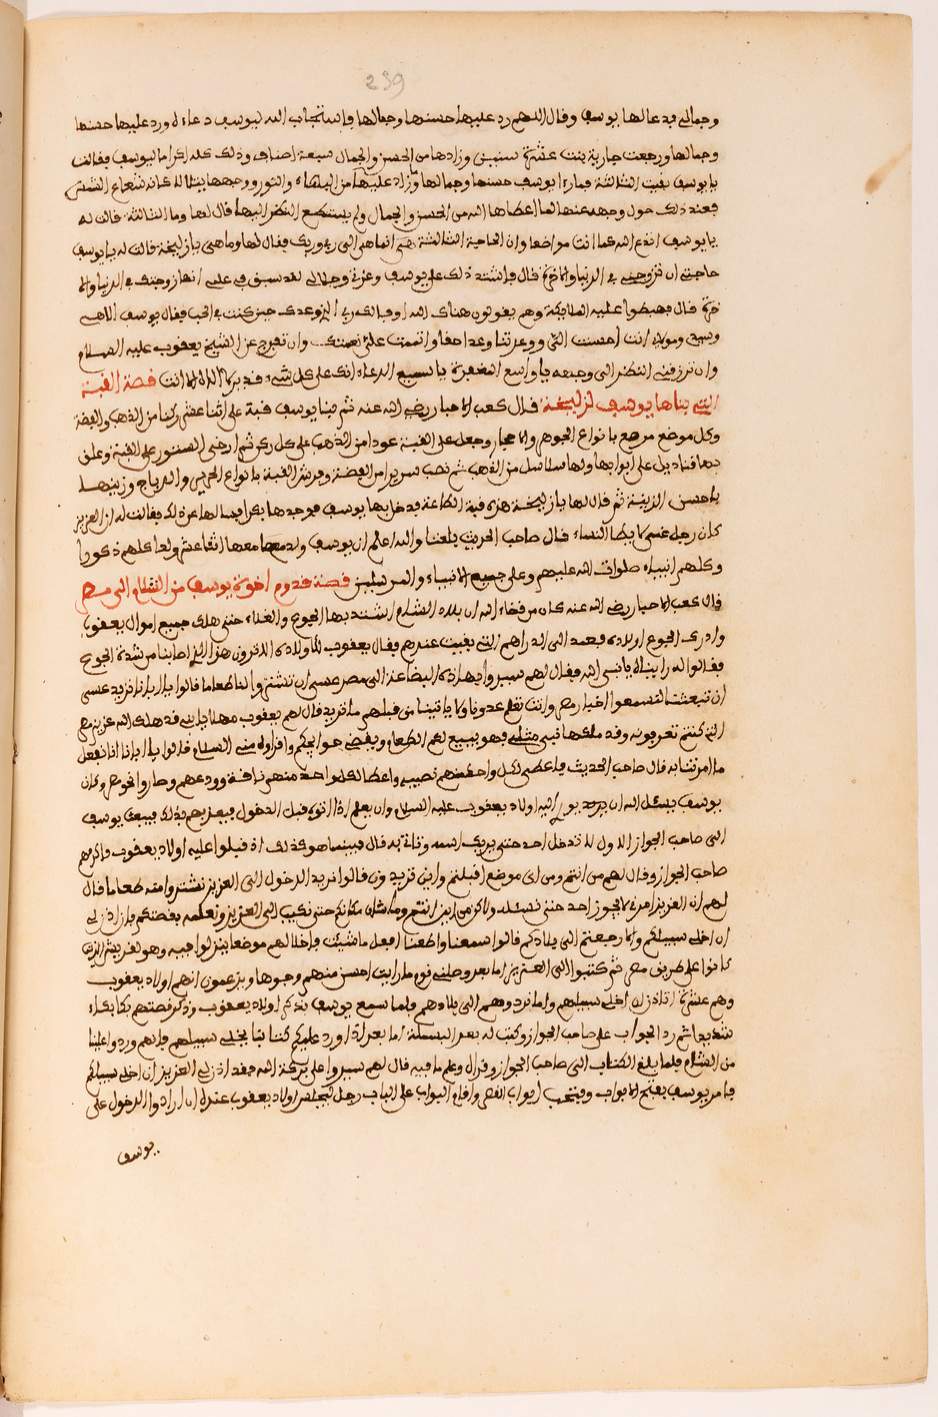 239
وجمالي فدعا لها يوسف وقال اللهم رد عليها حسنها وجمالها فاستجاب الله ليوسف دعاءه ورد عليها حسنها
وجمالها ورجعت جارية بنت عشرة سنين وزادها من الحسن والجمال سبعة اصناف وذلك كله اكراما ليوسف فقالت
يا يوسف بقيت الثالثة فما رءا يوسف حسنها وجمالها وزاد عليها من البهاء والنور ووجهها يتلالا كانه شعاع الشمس
فعند ذلك حول وجهه عنها لما اعطاها الله من الحسن والجمال ولم يستطع النظر اليها قال لها وما الثالثة قالت له
يا يوسف اتق الله فما انت مواضعا وان الحاجة الثالثة هي انما هي الى ربي وربك فقال لها وما هي يا زليخة قالت له يا يوسف
حاجتي ان تزوجني في الدنيا والاخرة قال فاشتد ذلك على يوسف وعزتي وجلالي لقد سبق في علمي انها زوجتك في الدنيا والا
خرة قال فهبطوا عليه الملايكة وهم يقولون هناك الله اوفا لك ربي الذي وعدك حين كنت في الجب فقال يوسف الاهي
وسيدي ومولاي انت احسنت الي ووعدتنا وعدا حقا واتممت علي نعمتك وان تفرج عن الشيخ يعقوب عليه السلام
وان ترزقني النظر الى وجهه يا واسع المغفرة يا سميع الدعاء انك على كل شيء قدير لا اله الا انت قصة القبة
التي بناها يوسف لزليخة قال كعب الاحبار رضي الله عنه ثم بنا يوسف قبة على اثنا عشر ركنا من الذهب والفضة
وكل موضع مرصع بانواع الجوهر والاحجار وجعل على القبة عودا من الذهب على كل ركن ثم ارخى الستور على القبة وعلق
بها قناديل على ابوابها ولها سلاسل من الذهب ثم نصب سريرا من الفضة وفرش القبة بانواع الحرير والديباج وزينها
باحسن الزينة ثم قال لها يا زليخة هذه قبة الطاعة فدخل بها يوسف فوجدها بكرا فسالها عن ذلك فقالت له ان العزيز
كان رجل عنين لا يطا النساء قال صاحب الحديث بلغنا والله اعلم ان يوسف ولد معها اثنا عشر ولدا كلهم ذكورا
وكلهم انبياء صلوات الله عليهم وعلى جميع الانبياء والمرسلين قصة قدوم اخوة يوسف من الشام الى مصر
قال كعب الاحبار رضي الله عنه كان من قضاء الله ان بلاد الشام اشتد بها الجوع والغلاء حتى هلك جميع اموال يعقوب
وادرك الجوع اولاده فعمد الى الدراهم التي بقيت عندهم وقال يعقوب لاولاده الا ترون هذا الذي اصابنا من شدة الجوع
فقالوا له راينا يا نبي الله فقال لهم سيروا بهاذه البضاعة الى مصر عسى ان تشتروا لنا طعاما قالوا يا ابانا تريد عسى
ان تبعثنا لقوم سمعوا اخبارهم وانت تعلم عدونا ولا ياتينا من قبلهم ما تريد قال لهم يعقوب مهلا يا بني قد هلك الله عزيز مصر
الذي كنتم تعرفونه وقد ملكها نبي مثلي فهو يبيع لهم الطعام ويقضي حوايجكم واقراوه مني السلام قالوا يا ابانا انا نفعل
ما امرتنا به قال صاحب الحديث فاعطى لكل واحد منهم نصيب واعطا لكل واحد منهم ناقة وودعهم وصاروا نحو مصر وكان
يوسف يسئل الله ان يرد اليه اولاد يعقوب عليه السلام وان يعلم اذا اتوه قبل الدخول فيعلم بذلك فبعث يوسف
الى صاحب الجواز الاول لا تدخل احد حتى يريك اسمه وتاتي به قال فبينما هو كذلك اذ قبلوا عليه اولاد يعقوب فاكرمهم
صاحب الجواز وقال لهم من انتم ومن اي موضع اقبلتم واين تريدون قالوا نريد الدخول الى العزيز نشتروا منه طعاما قال
لهم ان العزيز امرني لا يجوز احد حتى نسئله ولاكن من اين انتم وما شان مكانكم حتى نكتب الى العزيز ونعلمه بقصتكم فاذا اذن لي
ان اخلي سبيلكم والا رجعتم الى بلادكم قالوا سمعنا واطعنا افعل ما شيت فاخلا لهم موضعا ينزلوا فيه وهو لعريش الذي
كانوا على طريق مصر ثم كتب الى العزيز اما بعد وصلني قوم ما رايت احسن منهم وجوها ويزعمون انهم اولاد يعقوب
وهم عشرة اتاذن لي ان اخلي سبيلهم واما نردوهم الى بلادهم فلما سمع يوسف بذكر اولاد يعقوب وذكر قصتهم بكا بكاء
شديدا ثم رد الجواب على صاحب الجواز وكتب له بعد البسملة اما بعد اذا ورد عليكم كتابنا فخلي سبيلهم فانهم وردوا علينا
من الشام فلما بلغ الكتاب الى صاحب الجواز وقراه وعلم ما فيه قال لهم سيروا على بركة الله فقد اذن لي العزيز ان اخلي سبيلكم
فامر يوسف بفتح الابواب وفتحت ابواب القصر واقام البواب على الباب رجل ليجلس اولاد يعقوب عنده ان ارادوا الدخول على
يوسف